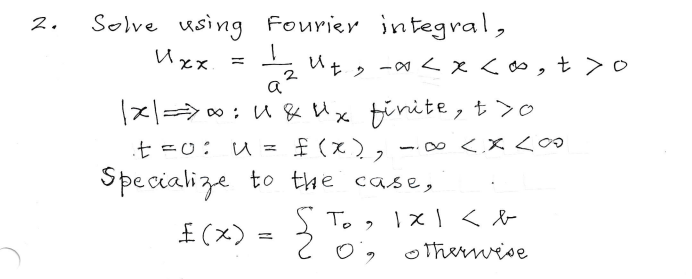 2. Solve using Fourier integral,
u_xx = 1/a² u_t , -∞ < x < ∞, t > 0
|x| ⟹ ∞ : u & u_x finite, t > 0
t = 0 : u = f(x), -∞ < x < ∞
Specialize to the case,
f(x) = { T₀ , |x| < b
0 , otherwise